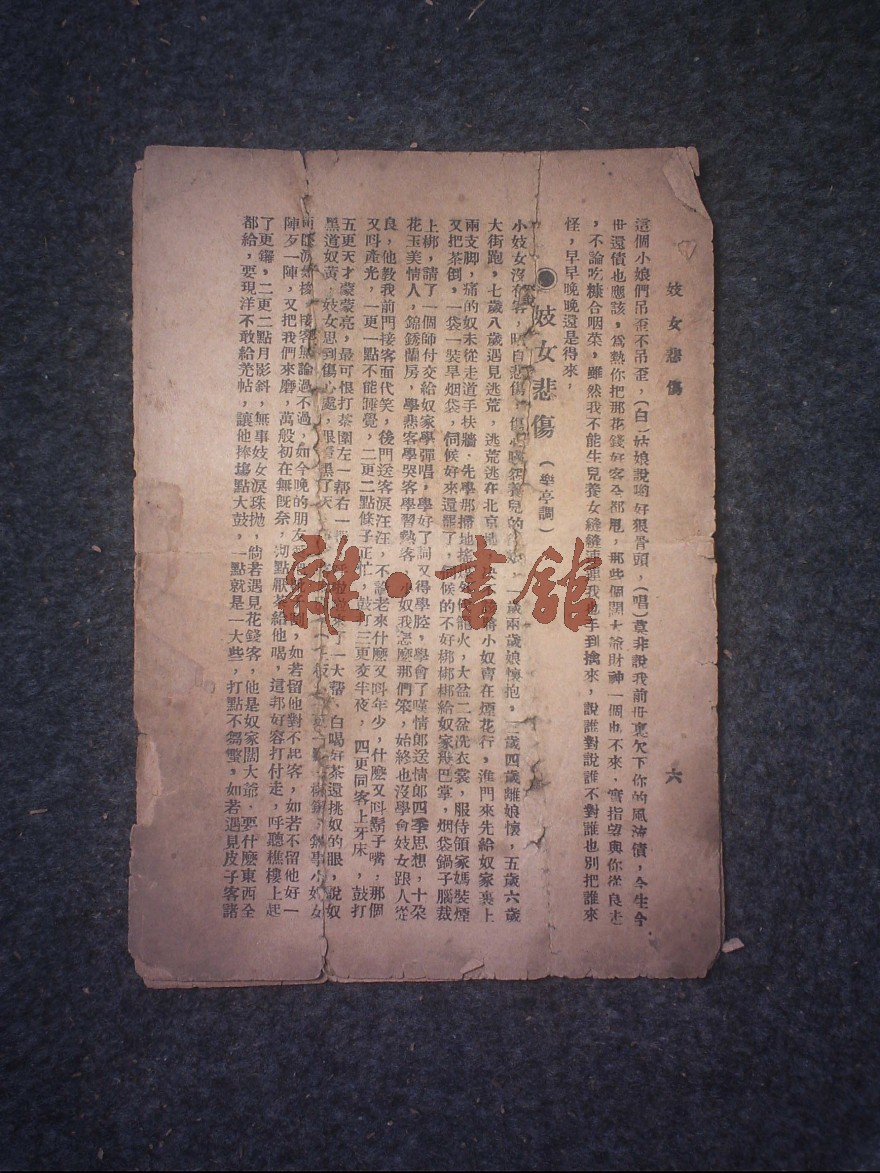 妓女悲傷
六
這個小娘們吊歪不吊歪，（白）姑娘說喲好狠骨頭，（唱）莫非說我前世裏欠下你的風流債，今生今
世還債也應該，為熱你把那花錢好客全都甩，那些個闊大爺財神一個也不來，實指望與你從良走
，不論吃糠合咽菜，雖然我不能生兒養女縫縫連連我也手到擒來，說誰對說誰不對誰也別把誰來
怪，早早晚晚還是得來，
●妓女悲傷（樂亭調）
小妓女沒有客，暗自悲傷，傷心嘆怨養兒的，一歲兩歲娘懷抱，三歲四歲離娘懷，五歲六歲
大街跑，七歲八歲遇見逃荒，逃荒逃在北京，將小奴賣在煙花行，進門來先給奴家裹上
兩支脚，痛的奴未從走道手扶牆，先學那掃地籠火，大盆二盆洗衣裳，服侍領家媽裝煙
又把茶倒，一袋一裝旱烟袋，伺候好來還罷了，伺候的不好梆梆梆給奴家幾巴掌，烟袋鍋子腦裁
上梆，請了一個師付交給奴家學彈唱，學好了詞又得學腔，學會了嘆情郎送情郎四季思想，十朶
花玉美情人，錦綉蘭房，學熬客學哭客學習熱客，小奴我怎麼那們笨，始終也沒學會妓女跟人從
良，他教我前門接客面代笑，後門送客淚汪汪，不論老來什麼又呌年少，什麼又呌鬍子嘴，那個
又呌產光，一更一點不能睡覺，二更二點條子正忙，鼓打三更変半夜，四更同客上牙床，鼓打
五更天才蒙蒙亮，最可恨打茶圍左一幇右一，來了一大幇，白喝好茶還挑奴的眼，說奴
黑道奴黃，妓女思到傷心處，眼看黑了天，小妓女
接客無論過不過，如今晚的朋友，如若留他對不起客，如若不留他好一
陣歹一陣，又把我們來磨，萬般初在無旣奈，沏點厭茶給他喝，這邦好容打付走，呼聽樵樓上起
了更鑼，二更二點月影斜，無事妓女淚珠拋，倘若遇見花錢客，他是奴家闊大爺，要什麼東西全
都給，要現洋不敢給羌帖，讓他摔塲點大鼓，一點就是一大些，打點不鷄蟹，如若遇見皮子客諸
雜·書館